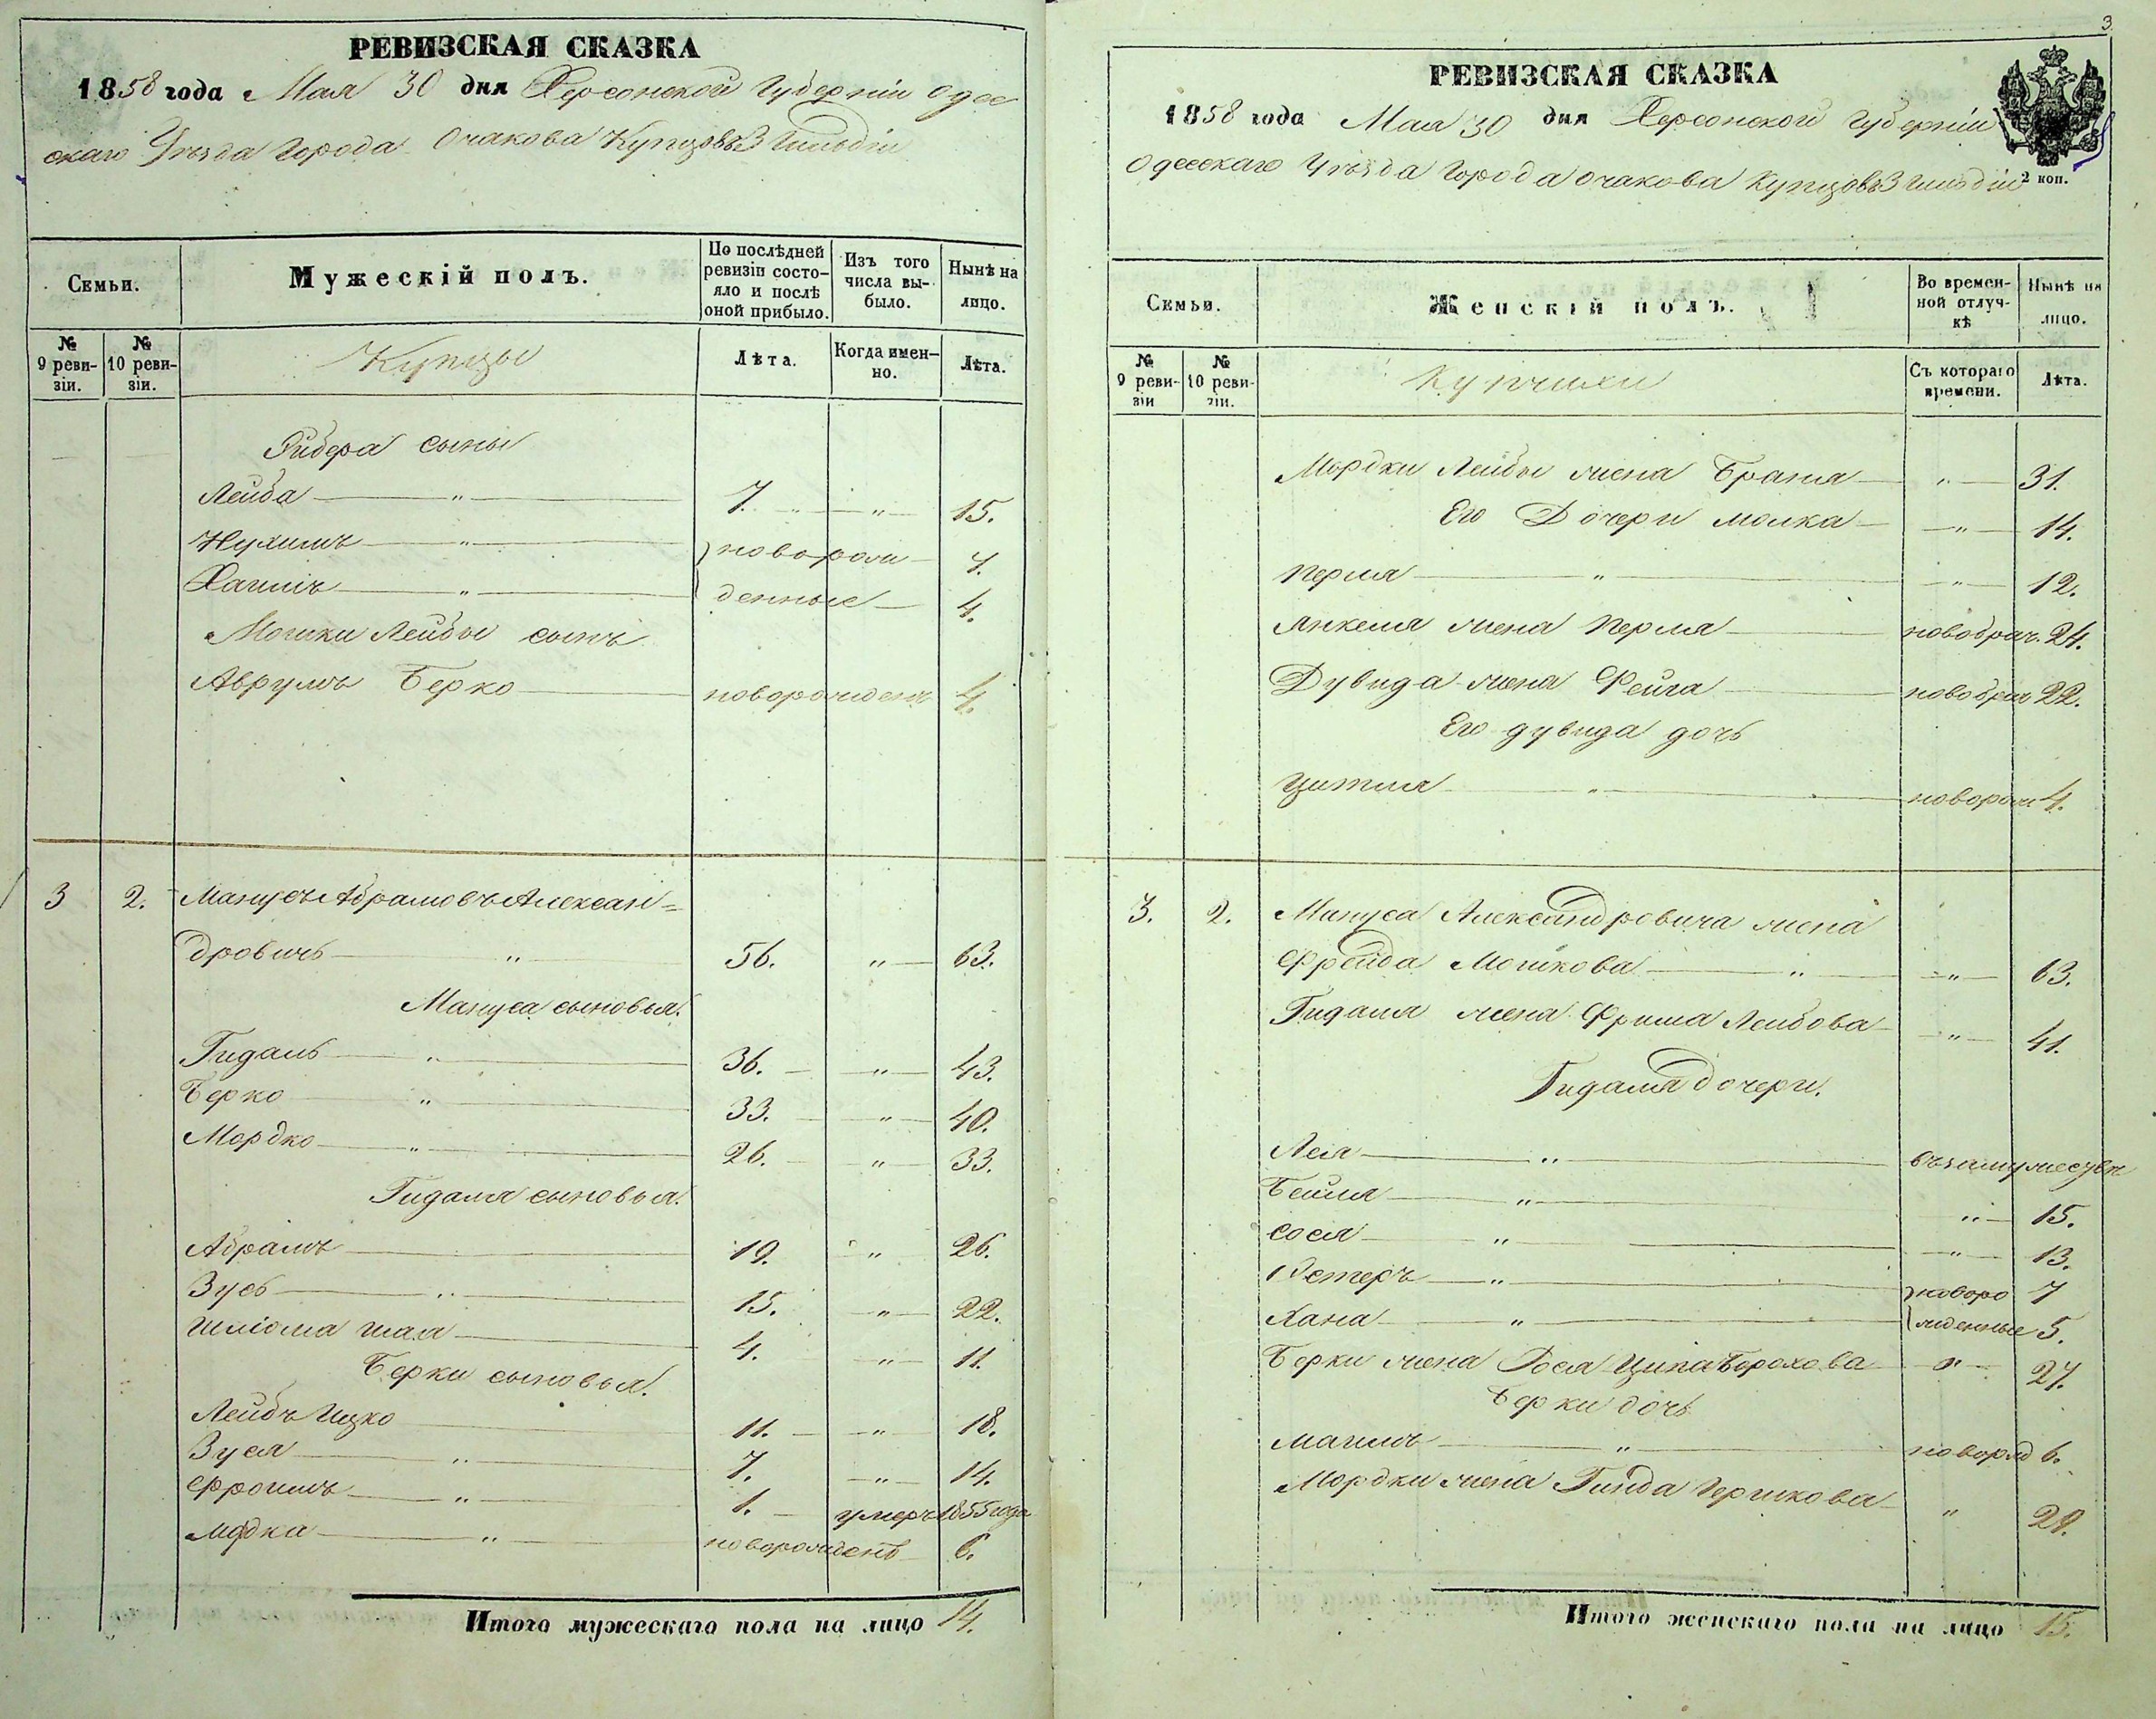 РЕВИЗСКАЯ СКАЗКА
1858 года Мая 30 дня Херсонской Губерніи Одес
скаго Уѣзда Города Очакова Купцовъ 3 Гильдіи
Семьи.
Мужескій полъ.
По послѣдней ревизіи состояло и послѣ оной прибыло.
Изъ того числа выбыло.
Нынѣ на лицо.
№ 9 ревизіи.
№ 10 ревизіи.
Купцы
Лѣта.
Когда именно.
Лѣта.
сыны
Лейба — " — 7. — " — 15.
Нухимъ — " — новорож 7.
— " — денные — 4.
Мошки Лейбы сынъ
Аврумъ Берко — новорожденъ 4.
3 2. Манусъ Абрамовъ Алексан=
дровичъ — " — 56. " — 63.
Мануса сыновья.
Гидаль — " — 36. — " — 43.
Берко — " — 33. — " — 40.
Мордко — " — 26. — " — 33.
Гидаля сыновья.
Абрамъ — 19. " 26.
Зусь — " — 15. — " — 22.
Шлiома шая — 4. — " — 11.
Берки сыновья.
Лейбъ Ицко — 11. — " — 18.
Зуся — " — 7. — " — 14.
Фроимъ — " — 1. — умеръ 1855 года
— " — новорожденъ 6.
Итого мужескаго пола на лицо 14.
3
РЕВИЗСКАЯ СКАЗКА
1858 года Мая 30 дня Херсонской Губерніи
Одесскаго Уѣзда Города Очакова Купцовъ 3 Гильдіи
2 коп.
Семьи.
Женскій полъ.
Во временной отлучкѣ
Нынѣ на лицо.
№ 9 ревизіи
№ 10 ревизіи.
Купчихи
Съ котораго времени.
Лѣта.
Мордки Лейбы жена Браня — " — 31.
Его Дочери Малка — " — 14.
Перля — " — " — 12.
Янкеля жена Перля — новобрач. 24.
Дувида жена Фейга — новобрач 22.
Его дувида дочь
— " — новорож 4.
3. 2. Мануса Александровича жена
Фрейда Мошкова — " — " — 63.
Гидаля жена Фрима Лейбова — " — 41.
Гидаля дочери.
Лея — " — въ замужест
Бейля — " — " — 15.
Сося — " — " — 13.
Эстеръ — " — новоро 7
Хана — " — жденные 5.
Берки жена Ципа Борохова — " — 27.
Берки дочь
— " — новорд 6.
Мордки жена Гинда Гершкова — " 28.
Итого женскаго пола на лицо 15.